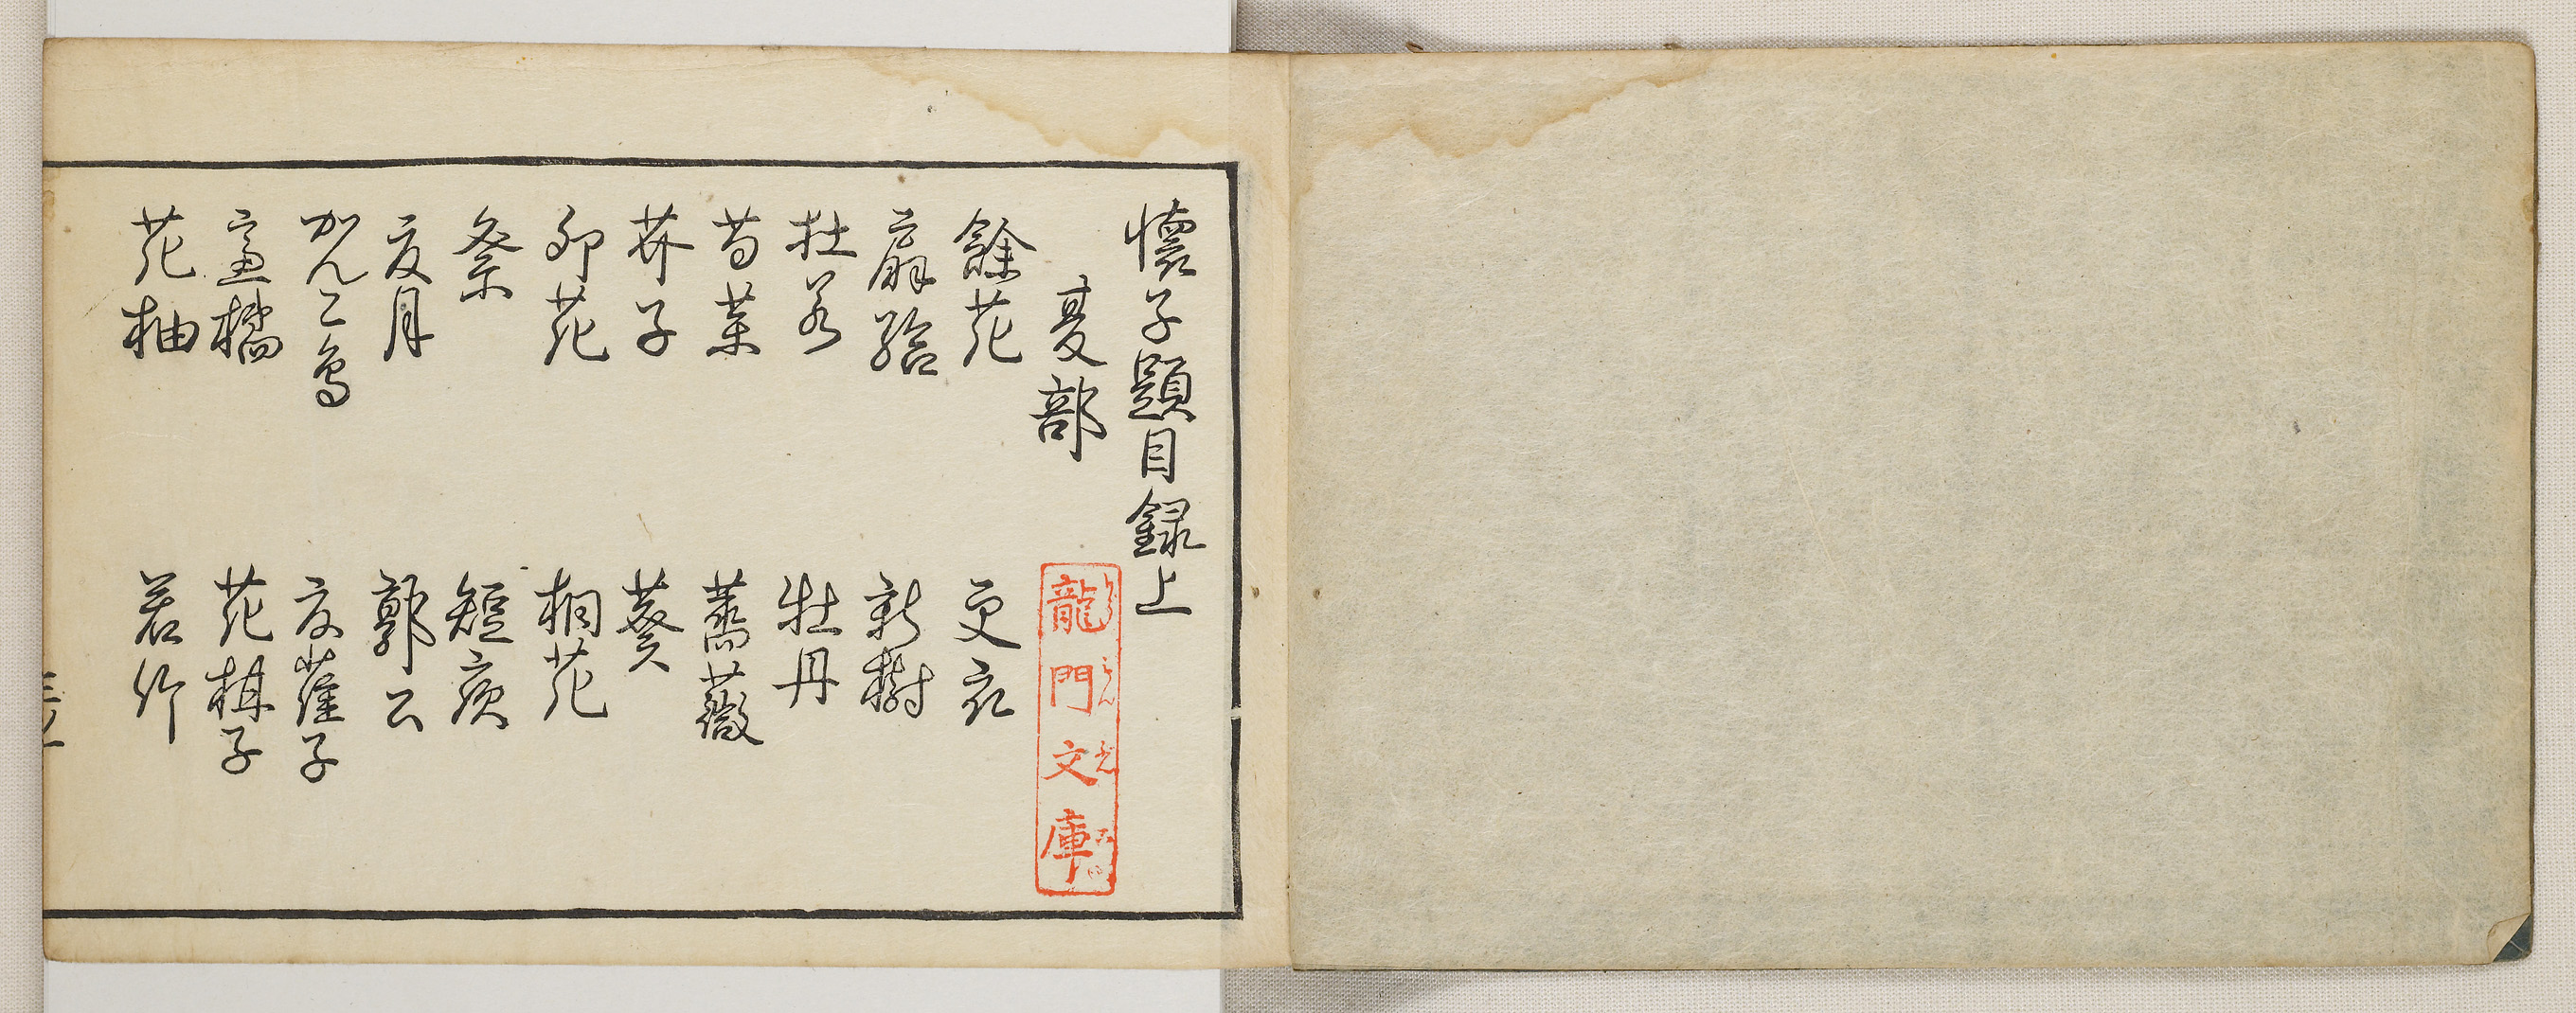 懐子題目録上
夏部
餘花 更衣
新樹
杜若 牡丹
芍薬 薔薇
芥子 葵
卯花 桐花
祭 短夜
夏月 郭公
かんこ鳥
盧橘
花柚 若竹
龍門文庫